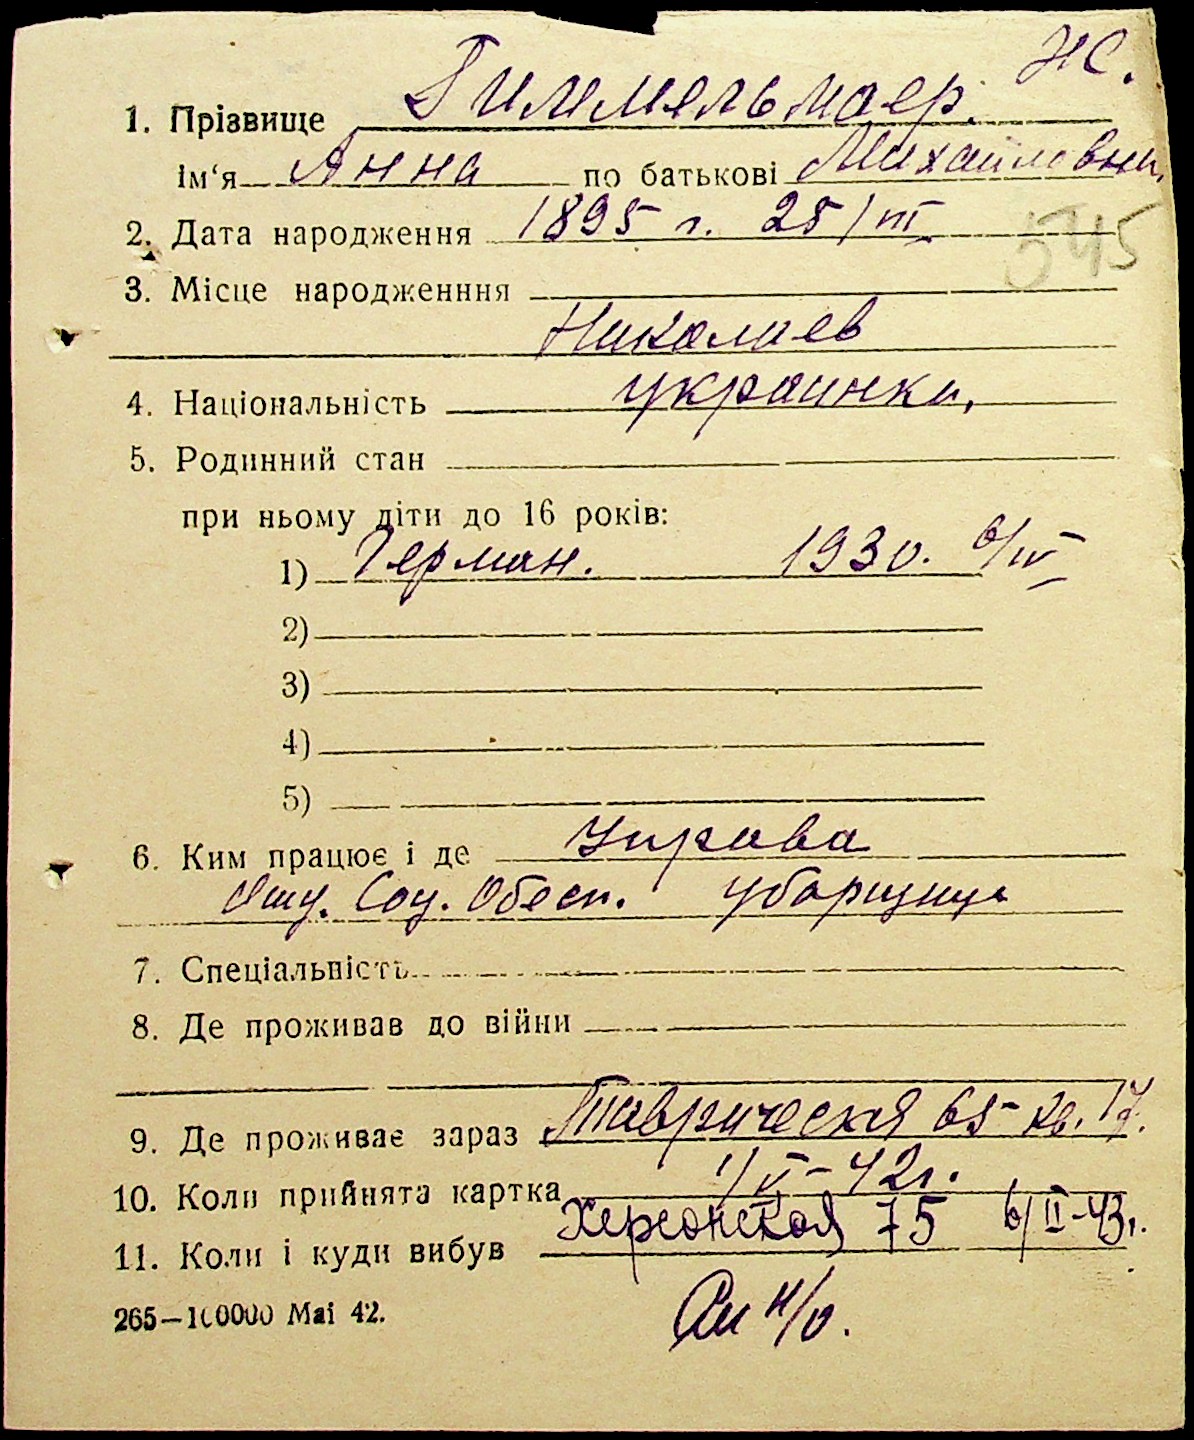 Ж.
1. Прізвище Гиммельмаер.
ім‘я Анна по батькові Михайловна
2. Дата народження 1895 г. 25/III
545
3. Місце народженння
Николаев
4. Національність украинка,
5. Родинний стан
при ньому діти до 16 років:
1) Герман. 1930. 6/IV
2)
3)
4)
5)
6. Ким працює і де Управа
Соц. Обесп. уборщица
7. Спеціальність
8. Де проживав до війни
9. Де проживає зараз Таврическая 65 кв. 17.
10. Коли прийнята картка 1/V-42г.
11. Коли і куди вибув Херсонская 75 6/II-43г.
См н/о.
265—100000 Mai 42.